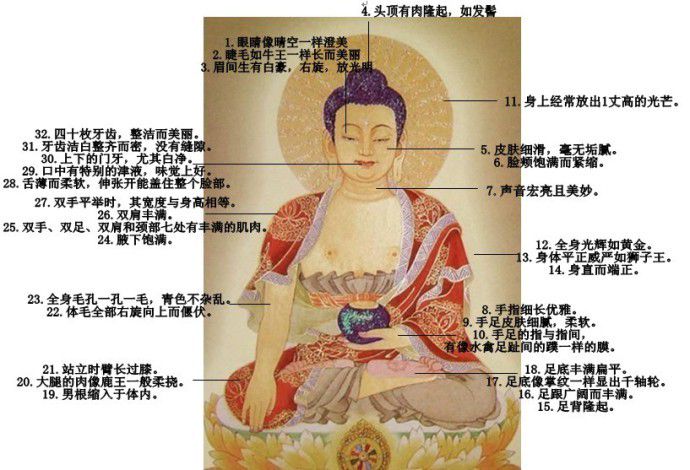 4. 头顶有肉隆起，如发髻
1. 眼睛像晴空一样澄美
2. 睫毛如牛王一样长而美丽
3. 眉间生有白豪，右旋，放光明
11. 身上经常放出1丈高的光芒。
32. 四十枚牙齿，整洁而美丽。
31. 牙齿洁白整齐而密，没有缝隙。
30. 上下的门牙，尤其白净。
29. 口中有特别的津液，味觉上好。
28. 舌薄而柔软，伸张开能盖住整个脸部。
5. 皮肤细滑，毫无垢腻。
6. 脸颊饱满而紧缩。
7. 声音宏亮且美妙。
27. 双手平举时，其宽度与身高相等。
26. 双肩丰满。
25. 双手、双足、双肩和颈部七处有丰满的肌肉。
24. 腋下饱满。
12. 全身光辉如黄金。
13. 身体平正威严如狮子王。
14. 身直而端正。
23. 全身毛孔一孔一毛，青色不杂乱。
22. 体毛全部右旋向上而偃伏。
8. 手指细长优雅。
9. 手足皮肤细腻，柔软。
10. 手足的指与指间，
有像水禽足趾间的蹼一样的膜。
21. 站立时臂长过膝。
20. 大腿的肉像鹿王一般柔挠。
19. 男根缩入于体内。
18. 足底丰满扁平。
17. 足底像掌纹一样显出千轴轮。
16. 足跟广阔而丰满。
15. 足背隆起。